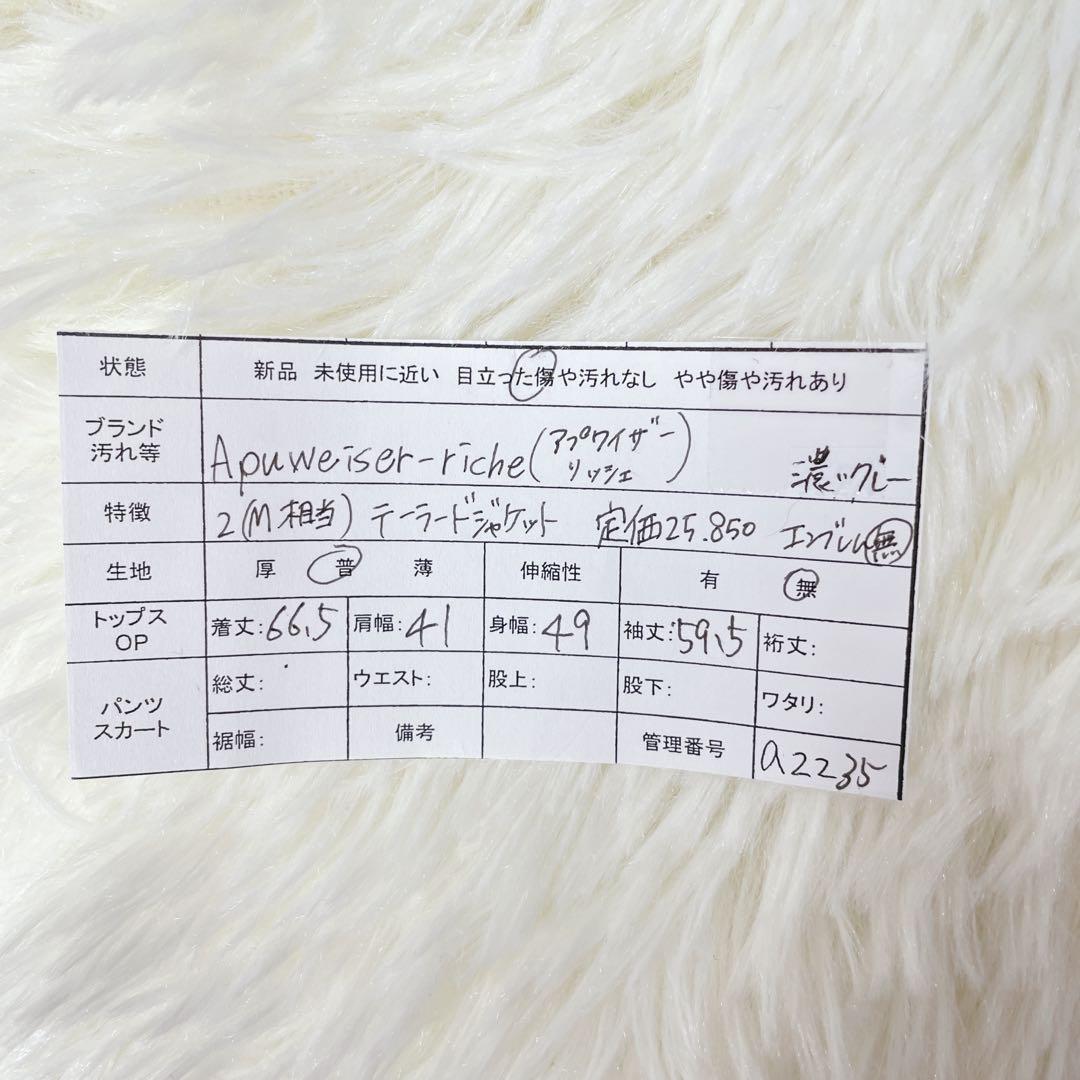 状態 新品 未使用に近い 目立った傷や汚れなし やや傷や汚れあり
ブランド 汚れ等 Apuweiser-riche(アプワイザーリッシェ) 濃いグレー
特徴 2(M相当) テーラードジャケット 定価25.850 エンブレム無
生地 厚 普 薄 伸縮性 有 無
トップス OP 着丈:66.5 肩幅:41 身幅:49 袖丈:59.5 裄丈:
パンツ スカート 総丈: ウエスト: 股上: 股下: ワタリ:
裾幅: 備考 管理番号 a2235